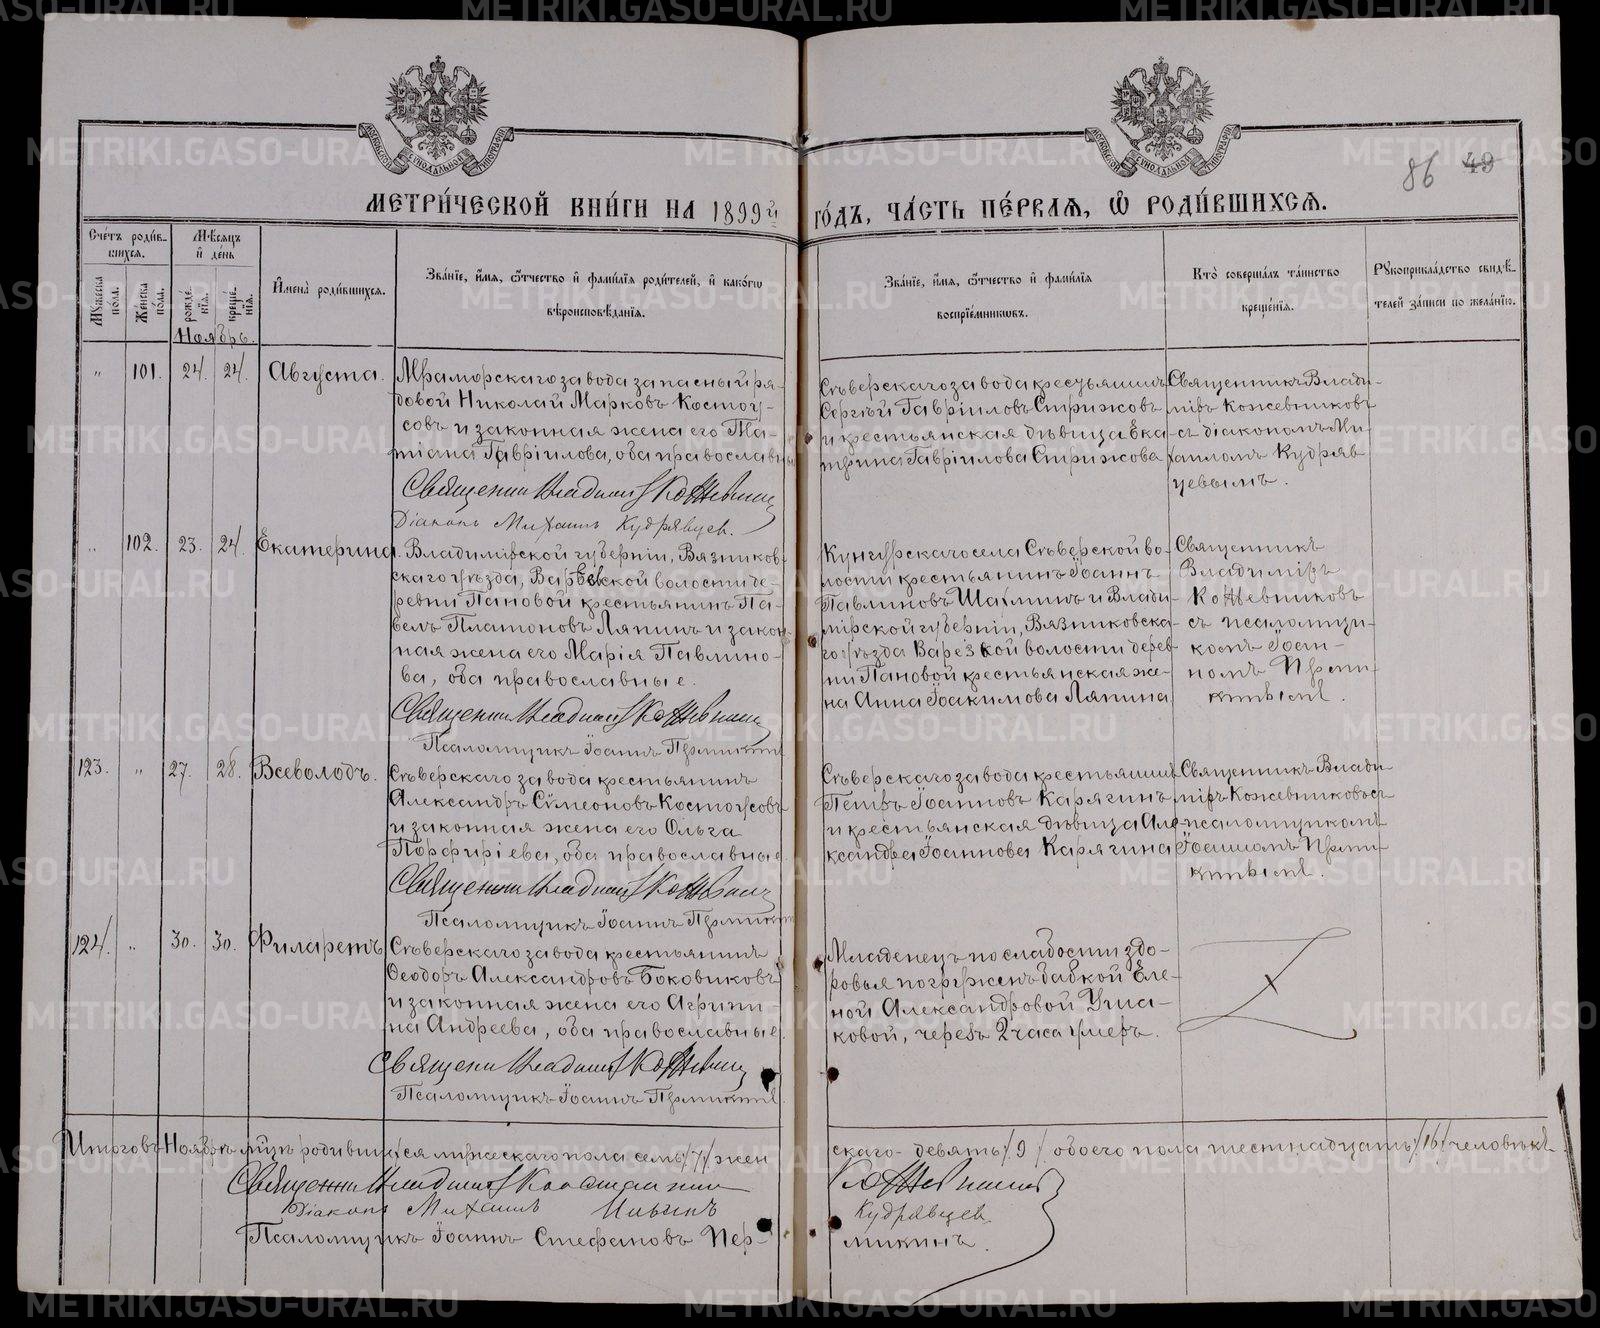 МЕТРИ́ЧЕСКОЙ КНИ́ГИ НА 1899й ГО́ДЪ, ЧА́СТЬ ПЕ́РВАѦ, Ѡ РОДИ́ВШИХСѦ.
86 49
Сче́тъ роди́в-
шихсѧ.
Мѣ́сѧцъ
и҆ де́нь
Мꙋ́жеска по́ла.
Же́нска по́ла.
рожде́-
нїѧ.
креще́-
нїѧ.
И҆мена̀ роди́вшихсѧ.
Зва́нїе, и҆́мѧ, ѻ҆́тчество и҆ фами́лїѧ роди́телей, и҆ како́гѡ
вѣроисповѣ́данїѧ.
Зва́нїе, и҆́мѧ, ѻ҆́тчество и҆ фами́лїѧ
воспрїе́мникѡвъ.
Кто̀ соверша́лъ та́инство
креще́нїѧ.
Рꙋкоприкла́дство свидѣ́-
телей за́писи по жела́нїю.
Ноябрь.
" 101. 24. 24. Августа.
Мраморскаго завода запасный ря-
довой Николай Марковъ Костоу-
совъ и законная жена его Та-
тіана Гавріилова, оба православн
Священник Владимір Кожевников
Діаконъ Михаилъ Кудрявцев.
Сѣверскаго завода крестьянинъ
Сергѣй Гавріиловъ Стрижовъ
и крестьянская дѣвица Ека
терина Гавріилова Стрижова
Священникъ Влади-
міръ Кожевниковъ
съ діакономъ Ми-
хаиломъ Кудряв
цевымъ.
" 102. 23. 24. Екатерина.
Владимірской губерніи, Вязников-
скаго уѣзда, Варѣевской волости де-
ревни Пановой крестьянинъ Па-
велъ Платоновъ Ляпинъ и закон-
ная жена его Марія Павлино-
ва, оба православные.
Священник Владимір Кожевников
Псаломщикъ Іоаннъ Пермикин
Кунгурскаго села Сѣверской во-
лости крестьянинъ Іоаннъ
Павлиновъ Шахминъ и Влади-
мірской губерніи, Вязниковска-
го уѣзда Варѣвской волости дерев
ни Пановой крестьянская же-
на Анна Іоакимова Ляпина
Священникъ
Владиміръ
Кожевниковъ
съ псаломщи-
комъ Іоан-
номъ Перми-
кинымъ.
123. " 27. 28. Всеволодъ.
Сѣверскаго завода крестьянинъ
Александръ Сѵмеоновъ Костоусовъ
и законная жена его Ольга
Порфиріева, оба православные.
Священник Владимір Кожевников
Псаломщикъ Іоаннъ Пермикин
Сѣверскаго завода крестьянинъ
Петръ Іоанновъ Карягинъ
и крестьянская дѣвица Але-
ксандра Іоаннова Карягина
Священникъ Влади
міръ Кожевниковъ съ
псаломщикомъ
Іоанномъ Перми-
кинымъ.
124. " 30. 30. Филаретъ
Сѣверскаго завода крестьянинъ
Ѳеодоръ Александровъ Боковиковъ
и законная жена его Агриппи-
на Андреева, оба православные.
Священник Владимір Кожевников
Псаломщикъ Іоаннъ Пермикин.
Младенецъ по слабости здо-
ровья погруженъ бабкой Еле-
ной Александровой Уша-
ковой, черезъ 2 часа умеръ.
Итого въ Ноябрѣ мцѣ родившихся мужескаго пола семь /7/ жен
скаго девять /9/ обоего пола шестнадцать /16/ человѣкъ.
Священник Владимір Константинов Кожевников
Діаконъ Михаилъ Ильинъ Кудрявцев.
Псаломщикъ Іоаннъ Стефановъ Пер-
микинъ.
METRIKI.GASO-URAL.RU